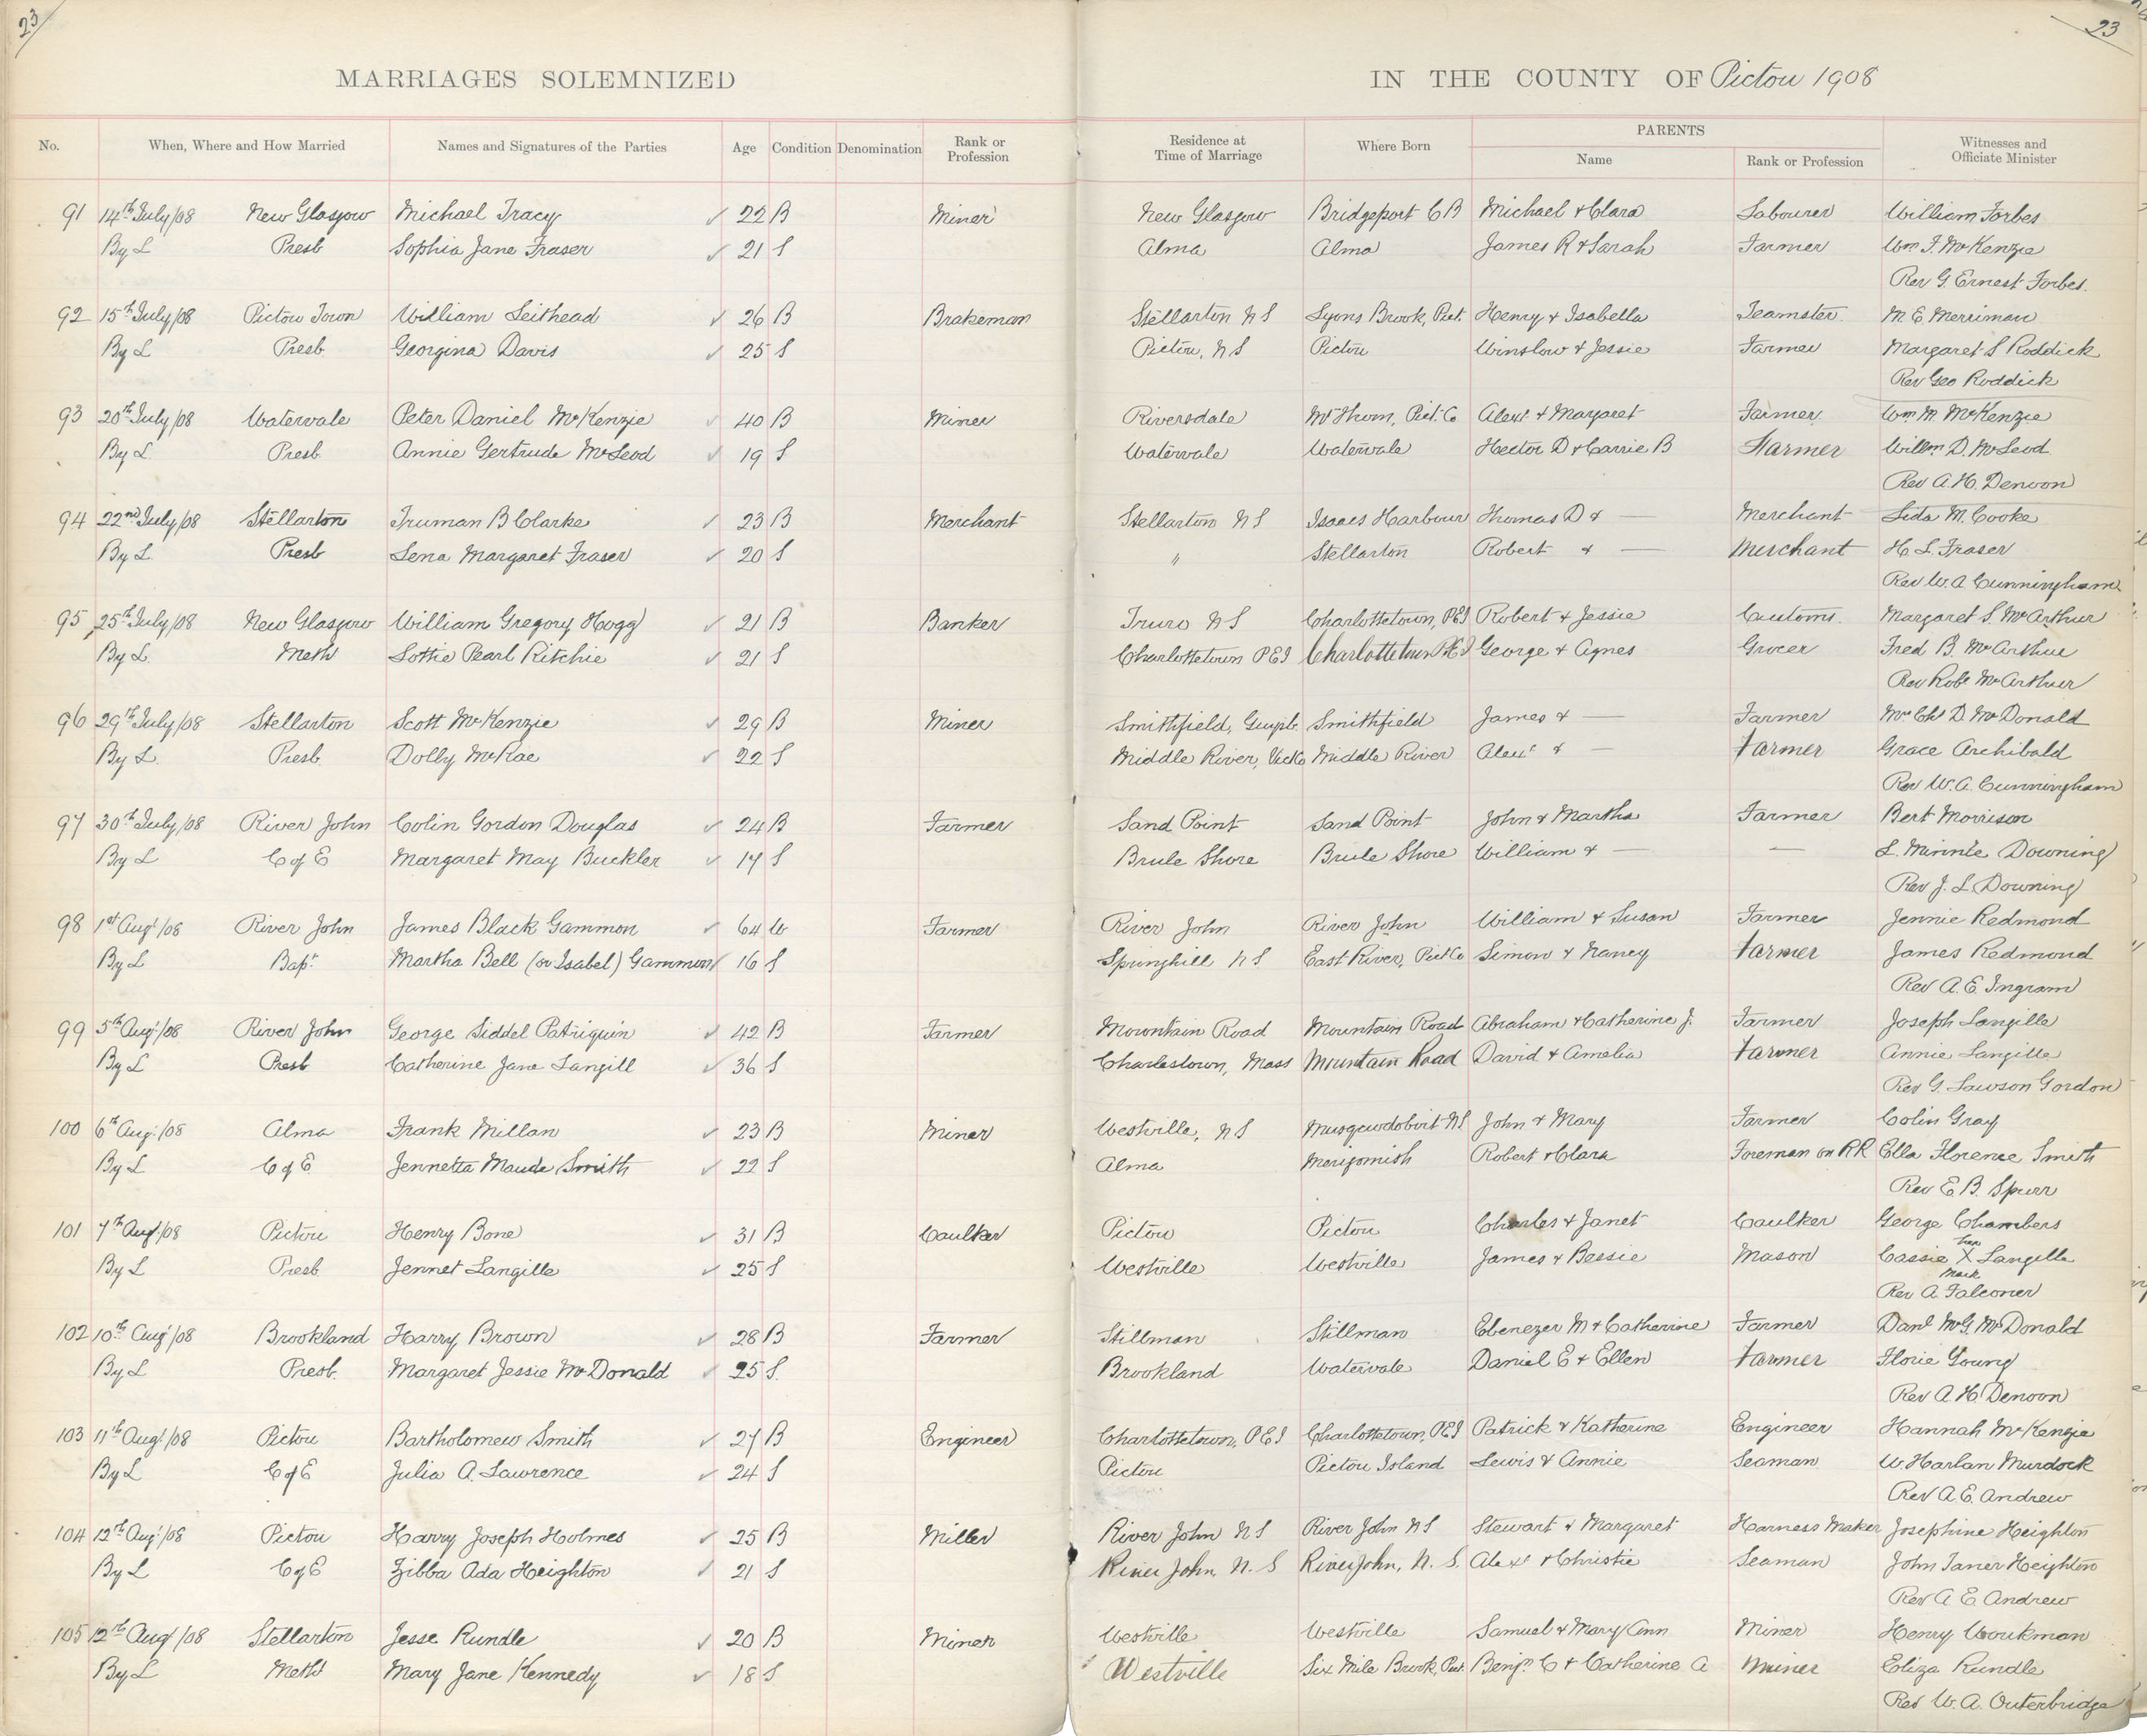 23
23
MARRIAGES SOLEMNIZED IN THE COUNTY OF Pictou 1908
No. When, Where and How Married Names and Signatures of the Parties Age Condition Denomination Rank or Profession Residence at Time of Marriage Where Born PARENTS Name Rank or Profession Witnesses and Officiate Minister
91 14th July/08 New Glasgow Michael Tracy ✓ 22 B Miner New Glasgow Bridgeport CB Michael & Clara Labourer William Forbes
By L Presb Sophia Jane Fraser ✓ 21 S Alma Alma James R & Sarah Farmer Wm F. McKenzie
Rev G. Ernest Forbes.
92 15th July/08 Pictou Town William Leithead ✓ 26 B Brakeman Stellarton NS Lyons Brook, Pict. Henry & Isabella Teamster. M. E. Merriman
By L Presb Georgina Davis ✓ 25 S Pictou, NS Pictou Winslow & Jessie Farmer Margaret S Roddick
Rev Geo Roddick
93 20th July/08 Watervale Peter Daniel McKenzie ✓ 40 B Miner Riversdale Mt Thom, Pict. Co Alexr. & Margaret Farmer. Wm. M. McKenzie
By L. Presb. Annie Gertrude McLeod ✓ 19 S Watervale Watervale Hector D & Carrie B Farmer Willm D. McLeod
Rev A. H. Denoon
94 22nd July/08 Stellarton Truman B Clarke ✓ 23 B Merchant Stellarton NS Isaacs Harbour Thomas D & — Merchant Lida M. Cooke
By L. Presb Lena Margaret Fraser ✓ 20 S " Stellarton Robert & — Merchant H. L. Fraser
Rev W. A Cunningham
95 25th July/08 New Glasgow William Gregory Hogg ✓ 21 B Banker Truro NS Charlottetown, PEI Robert & Jessie Customs. Margaret S. McArthur
By L. Meth Lottie Pearl Ritchie ✓ 21 S Charlottetown PEI Charlottetown PEI George & Agnes Grocer Fred B. McArthur
Rev Robt McArthur
96 29th July/08 Stellarton Scott McKenzie ✓ 29 B Miner Smithfield, Guysb. Smithfield James & — Farmer Mrs Chs D. McDonald
By L. Presb. Dolly McRae ✓ 22 S Middle River, Vic Co Middle River Alexr & — Farmer Grace Archibald
Rev W. A. Cunningham
97 30th July/08 River John Colin Gordon Douglas ✓ 24 B Farmer Sand Point Sand Point John & Martha Farmer Bert Morrison
By L C of E Margaret May Buckler ✓ 17 S Brule Shore Brule Shore William & — — L. Minnie Downing
Rev J. L. Downing
98 1st Augt/08 River John James Black Gammon ✓ 64 W Farmer River John River John William & Susan Farmer Jennie Redmond
By L Bapt. Martha Bell (or Isabel) Gammon ✓ 16 S Springhill NS East River, Pict Co Simon & Nancy Farmer James Redmond
Rev A. E. Ingram
99 5th Aug/08 River John George Siddel Patriquin ✓ 42 B Farmer Mountain Road Mountain Road Abraham & Catherine J. Farmer Joseph Langille
By L Presb Catherine Jane Langill ✓ 36 S Charlestown, Mass Mountain Road David & Amelia Farmer Annie Langille
Rev G. Lawson Gordon
100 6th Aug./08 Alma Frank Millan ✓ 23 B Miner Westville, NS Musquodobit NS John & Mary Farmer Colin Gray
By L C of E Jennetta Maude Smith ✓ 22 S Alma Merigomish Robert & Clara Foreman on RR Ella Florence Smith
Rev E. B. Spurr
101 7th Augt/08 Pictou Henry Bone ✓ 31 B Caulker Pictou Pictou Charles & Janet Caulker George Chambers
By L Presb Jennet Langille ✓ 25 S Westville Westville James & Bessie Mason Cassie her X mark Langille
Rev A. Falconer
102 10th Aug/08 Brookland Harry Brown ✓ 28 B Farmer Stillman Stillman Ebenezer M & Catherine Farmer Danl McG. McDonald
By L Presb. Margaret Jessie McDonald ✓ 25 S. Brookland Watervale Daniel E & Ellen Farmer Florie Young
Rev A. H. Denoon
103 11th Augt/08 Pictou Bartholomew Smith ✓ 27 B Engineer Charlottetown, PEI Charlottetown, PEI Patrick & Katherine Engineer Hannah McKenzie
By L C of E Julia A. Lawrence ✓ 24 S Pictou Pictou Island Lewis & Annie Seaman W. Harlan Murdock
Rev A. E. Andrew
104 12th Aug/08 Pictou Harry Joseph Holmes ✓ 25 B Miller River John NS River John NS Stewart & Margaret Harness Maker Josephine Heighton
By L C of E Zibba Ada Heighton ✓ 21 S River John, N. S River John, N. S. Alexr & Christie Seaman John Taner Heighton
Rev A E. Andrew
105 12th Aug/08 Stellarton Jesse Rundle ✓ 20 B Miner Westville Westville Samuel & Mary Ann Miner Henry Workman
By L Meth Mary Jane Kennedy ✓ 18 S Westville Six Mile Brook, Pict. Benjn C & Catherine A Miner Eliza Rundle
Rev W. A. Outerbridge